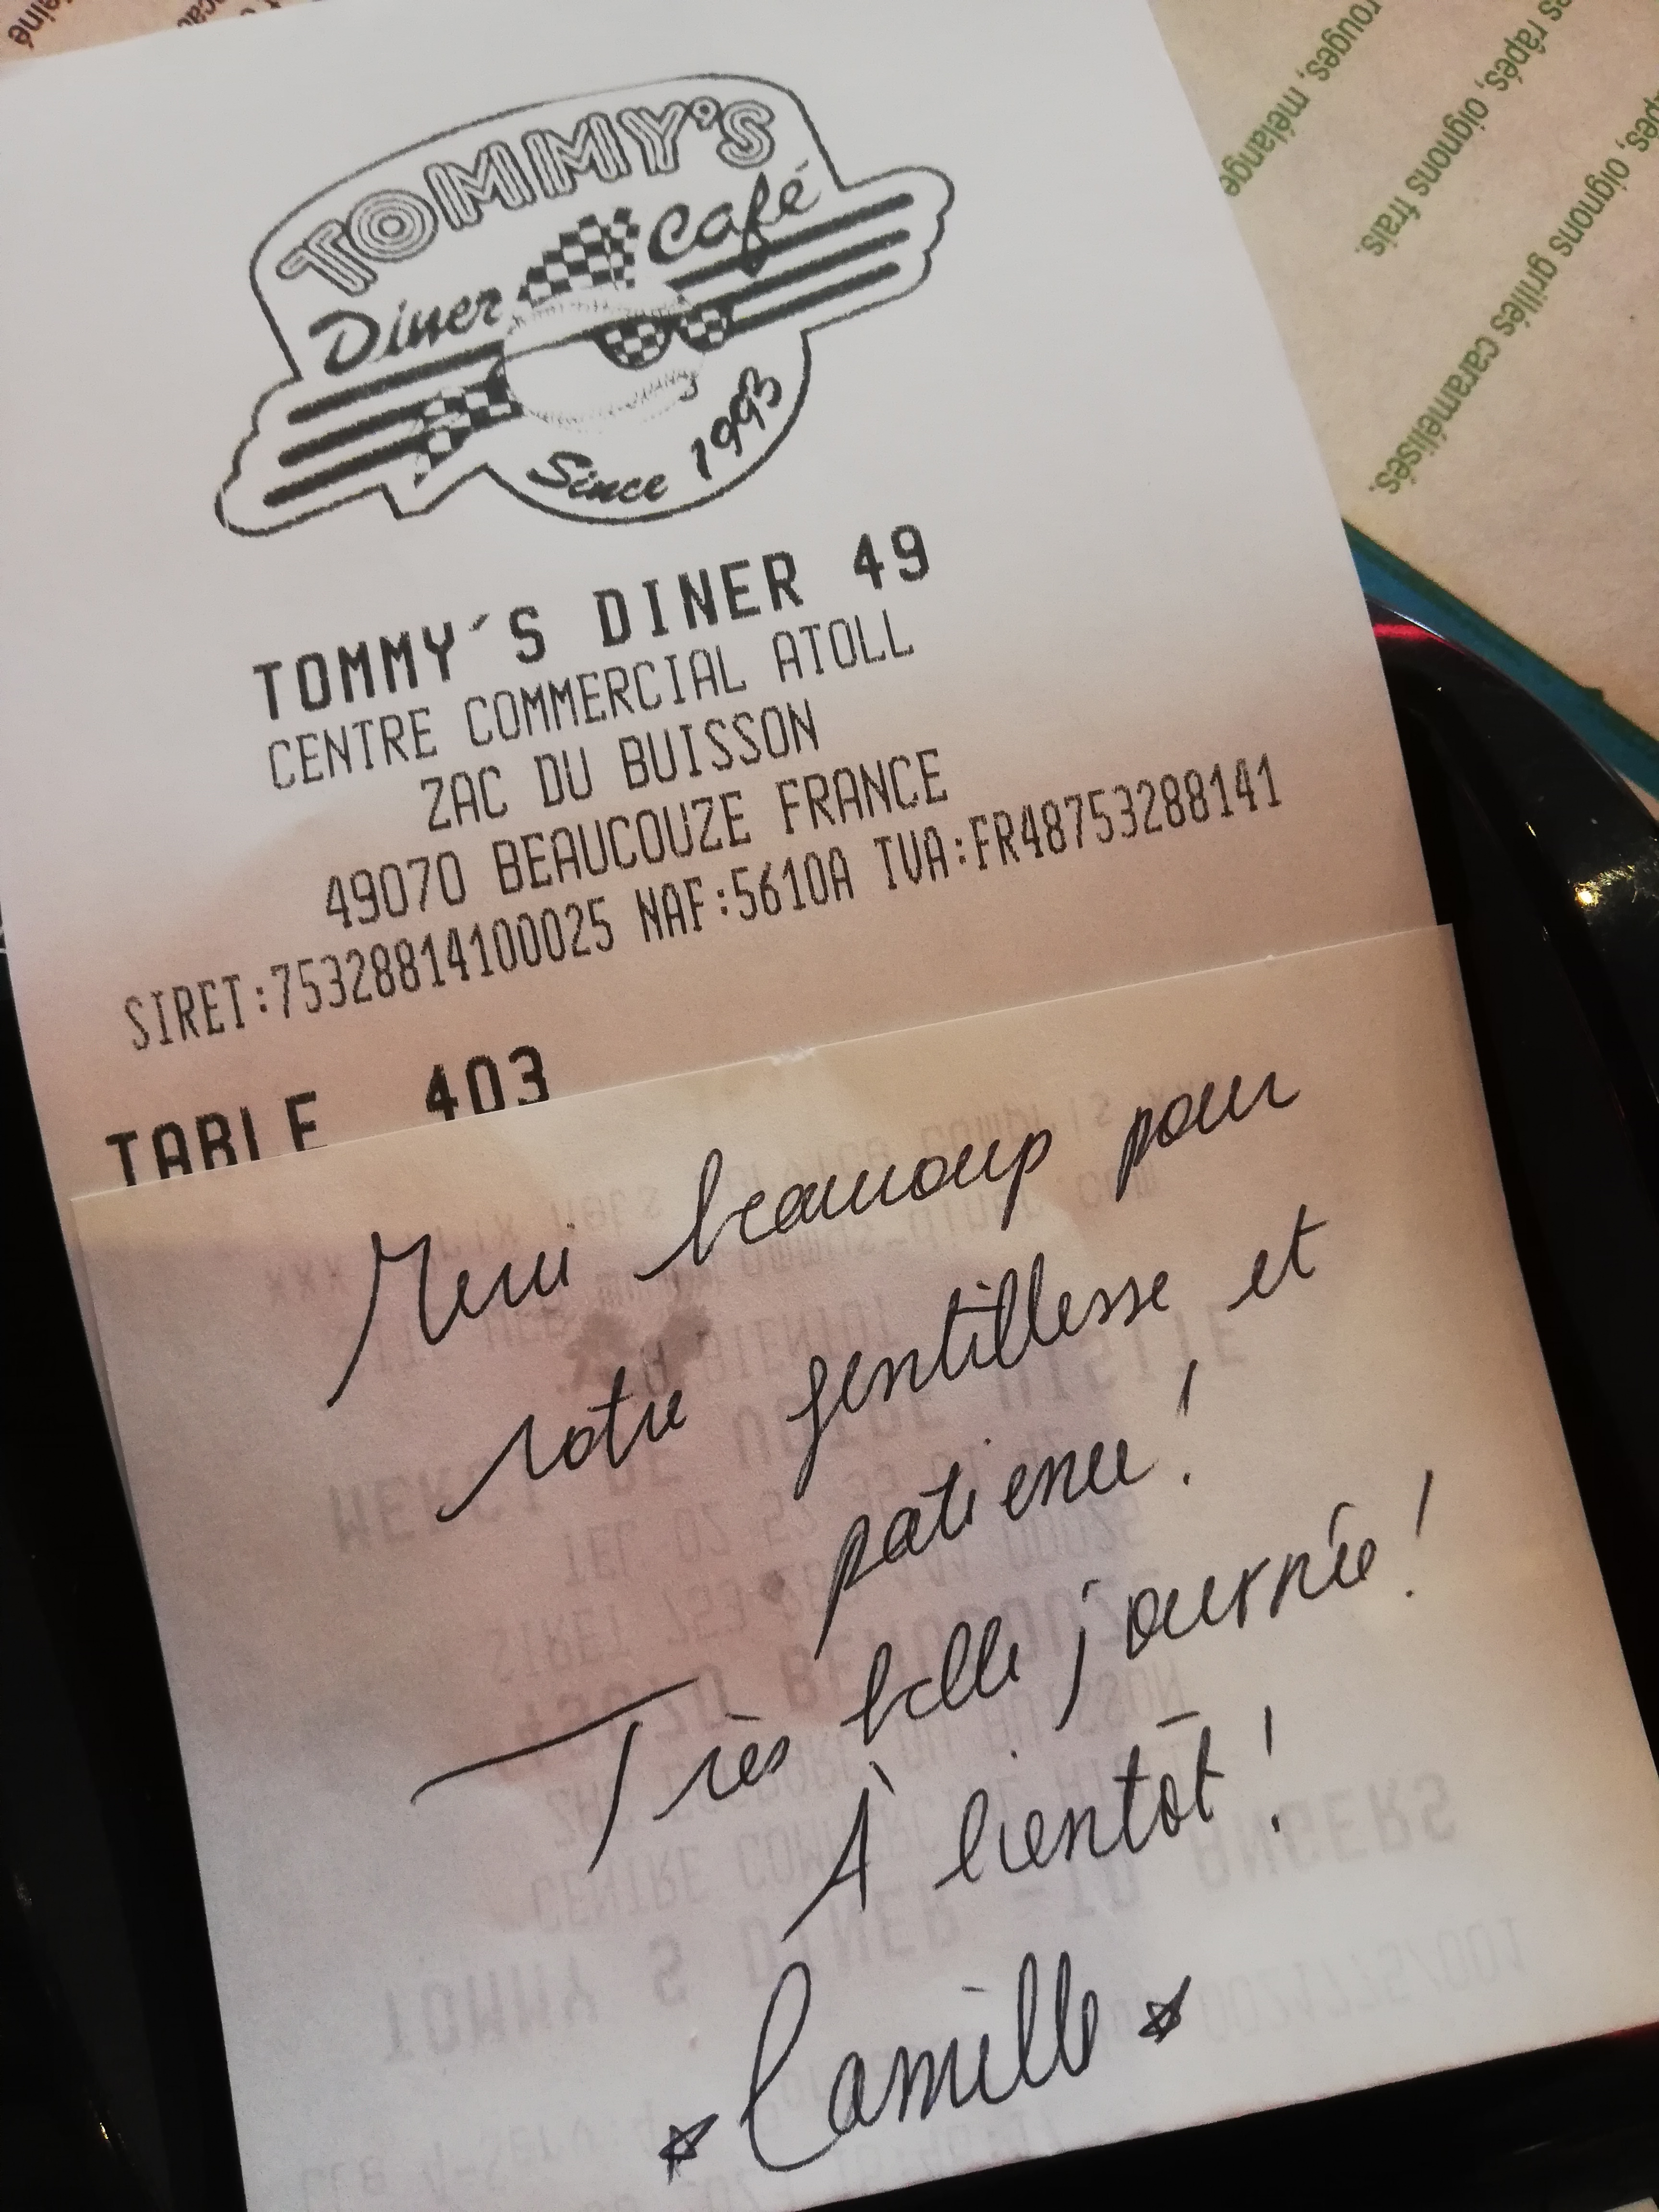 TOMMY'S
Diner Café
Since 1993
TOMMY´S DINER 49
CENTRE COMMERCIAL ATOLL
ZAC DU BUISSON
49070 BEAUCOUZE FRANCE
SIRET:75328814100025 NAF:5610A IVA:FR48753288141
TABLE 403
Merci beaucoup pour
votre gentillesse et
patience !
Très belle journée !
À bientôt !
Camille
rouges, mélange
es râpés, oignons frais.
oignons grillés caramélisés.